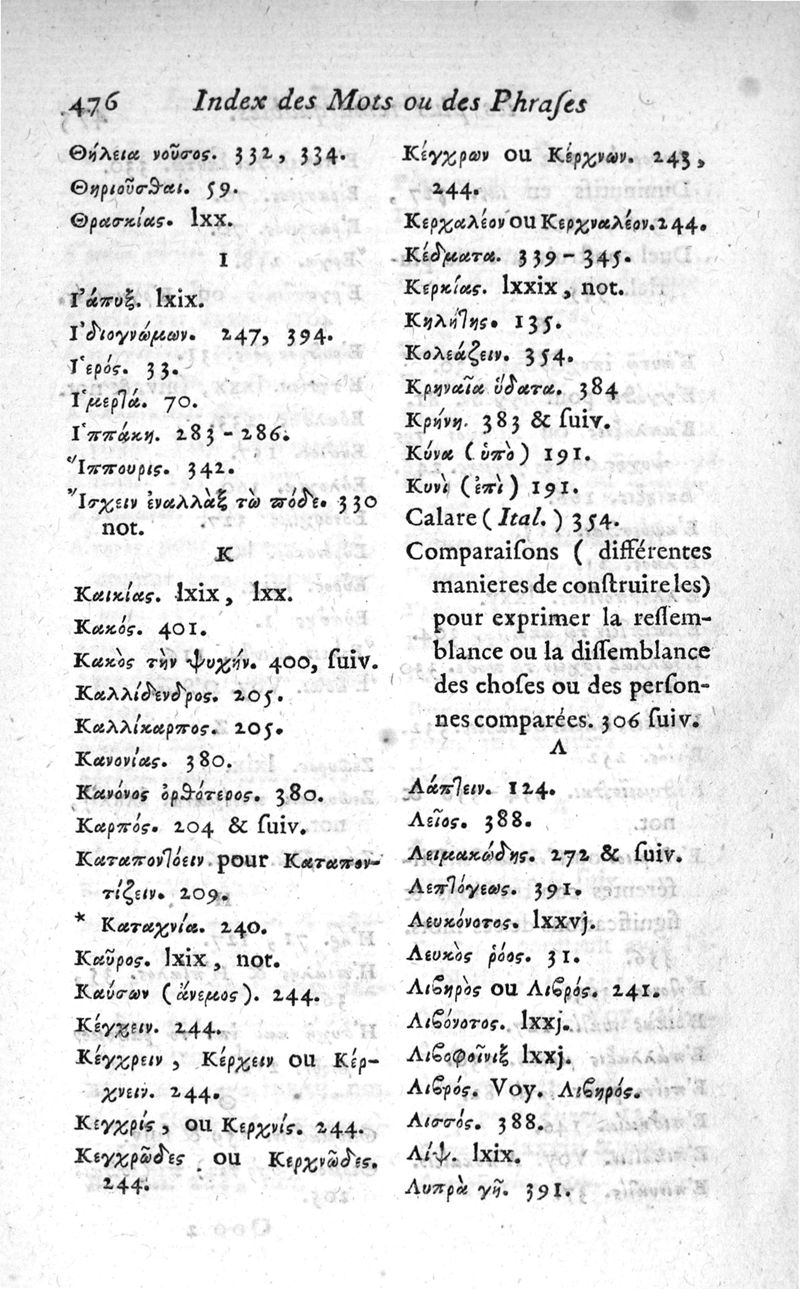 476 Index des Mots ou des Phraſes
Θήλεια νοῦσος. 332, 334.
Θηριοῦσθαι. 59.
Θρασκίας. lxx.
I
Ἰάπυξ. lxix.
Ἰδιογνώμων. 247, 394.
Ἱερός. 33.
Ἱμερτά. 70.
Ἱππάκη. 283-286.
Ἵππουρις. 342.
Ἴσχειν ἐναλλὰξ τὼ πόδε. 330
not.
K
Καικίας. lxix, lxx.
Κακός. 401.
Κακὸς τὴν ψυχήν. 400, ſuiv.
Καλλίδενδρος. 205.
Καλλίκαρπος. 205.
Κανονίας. 380.
Κανόνος ὀρθότερος. 380.
Καρπός. 204 & ſuiv.
Καταποντόειν pour Καταπον-
τίζειν. 209.
* Καταχνία. 240.
Καῦρος. lxix, not.
Καύσων (ἄνεμος). 244.
Κέγχειν. 244.
Κέγχρειν, Κέρχειν ou Κέρ-
χνειν. 244.
Κεγχρίς, ou Κερχνίς. 244.
Κεγχρῶδες ou Κερχνῶδες.
244.
Κέγχρων ou Κέρχνων. 243,
244.
Κερχαλέον ou Κερχναλέον. 244.
Κέδματα. 339-345.
Κερκίας. lxxix, not.
Κηλήτης. 135.
Κολεάζειν. 354.
Κρηναῖα ὕδατα. 384
Κρήνη. 383 & ſuiv.
Κύνα (ὑπὸ) 191.
Κυνὶ (ἐπὶ) 191.
Calare (Ital.) 354.
Comparaiſons ( différentes
manieres de conſtruire les)
pour exprimer la reſſem-
blance ou la diſſemblance
des choſes ou des perſon-
nes comparées. 306 ſuiv.
Λ
Λάπτειν. 124.
Λεῖος. 388.
Λειμακώδης. 272 & ſuiv.
Λεπτόγεως. 391.
Λευκόνοτος. lxxvj.
Λευκὸς ῥόος. 31.
Λιβηρὸς ou Λιβρός. 241.
Λιβόνοτος. lxxj.
Λιβοφοῖνιξ lxxj.
Λιβρός. Voy. Λιβηρός.
Λισσός. 388.
Λίψ. lxix.
Λυπρὰ γῆ. 391.